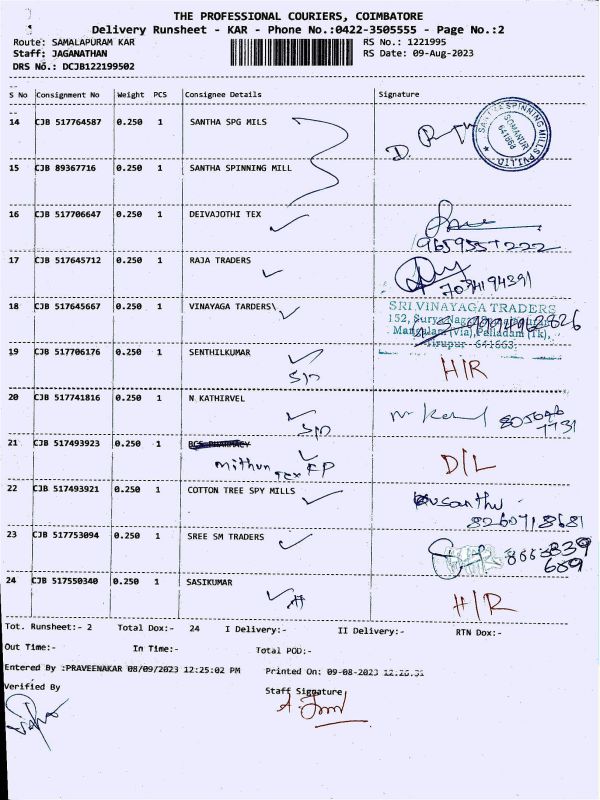 THE PROFESSIONAL COURIERS, COIMBATORE
Delivery Runsheet - KAR - Phone No.:0422-3505555 - Page No.:2
Route: SAMALAPURAM KAR RS No.: 1221995
Staff: JAGANATHAN RS Date: 09-Aug-2023
DRS No.: DCJB122199502
S No Consignment No Weight PCS Consignee Details Signature
14 CJB 517764587 0.250 1 SANTHA SPG MILS
SANTHA SPINNING MILLS PVT.LTD
SOMANUR
641668
15 CJB 89367716 0.250 1 SANTHA SPINNING MILL
16 CJB 517706647 0.250 1 DEIVAJOTHI TEX
17 CJB 517645712 0.250 1 RAJA TRADERS
18 CJB 517645667 0.250 1 VINAYAGA TARDERS\
SRI VINAYAGA TRADERS
152, Surya Nagar
Mangalam (Via), Palladam (Tk),
Tirupur - 641663.
19 CJB 517706176 0.250 1 SENTHILKUMAR
H/R
20 CJB 517741816 0.250 1 N KATHIRVEL
21 CJB 517493923 0.250 1
mithun Tex FP D/L
22 CJB 517493921 0.250 1 COTTON TREE SPY MILLS
23 CJB 517753094 0.250 1 SREE SM TRADERS
24 CJB 517550340 0.250 1 SASIKUMAR
H/R
Tot. Runsheet:- 2 Total Dox:- 24 I Delivery:- II Delivery:- RTN Dox:-
Out Time:- In Time:- Total POD:-
Entered By :PRAVEENAKAR 08/09/2023 12:25:02 PM Printed On: 09-08-2023 12:26:31
Verified By Staff Signature